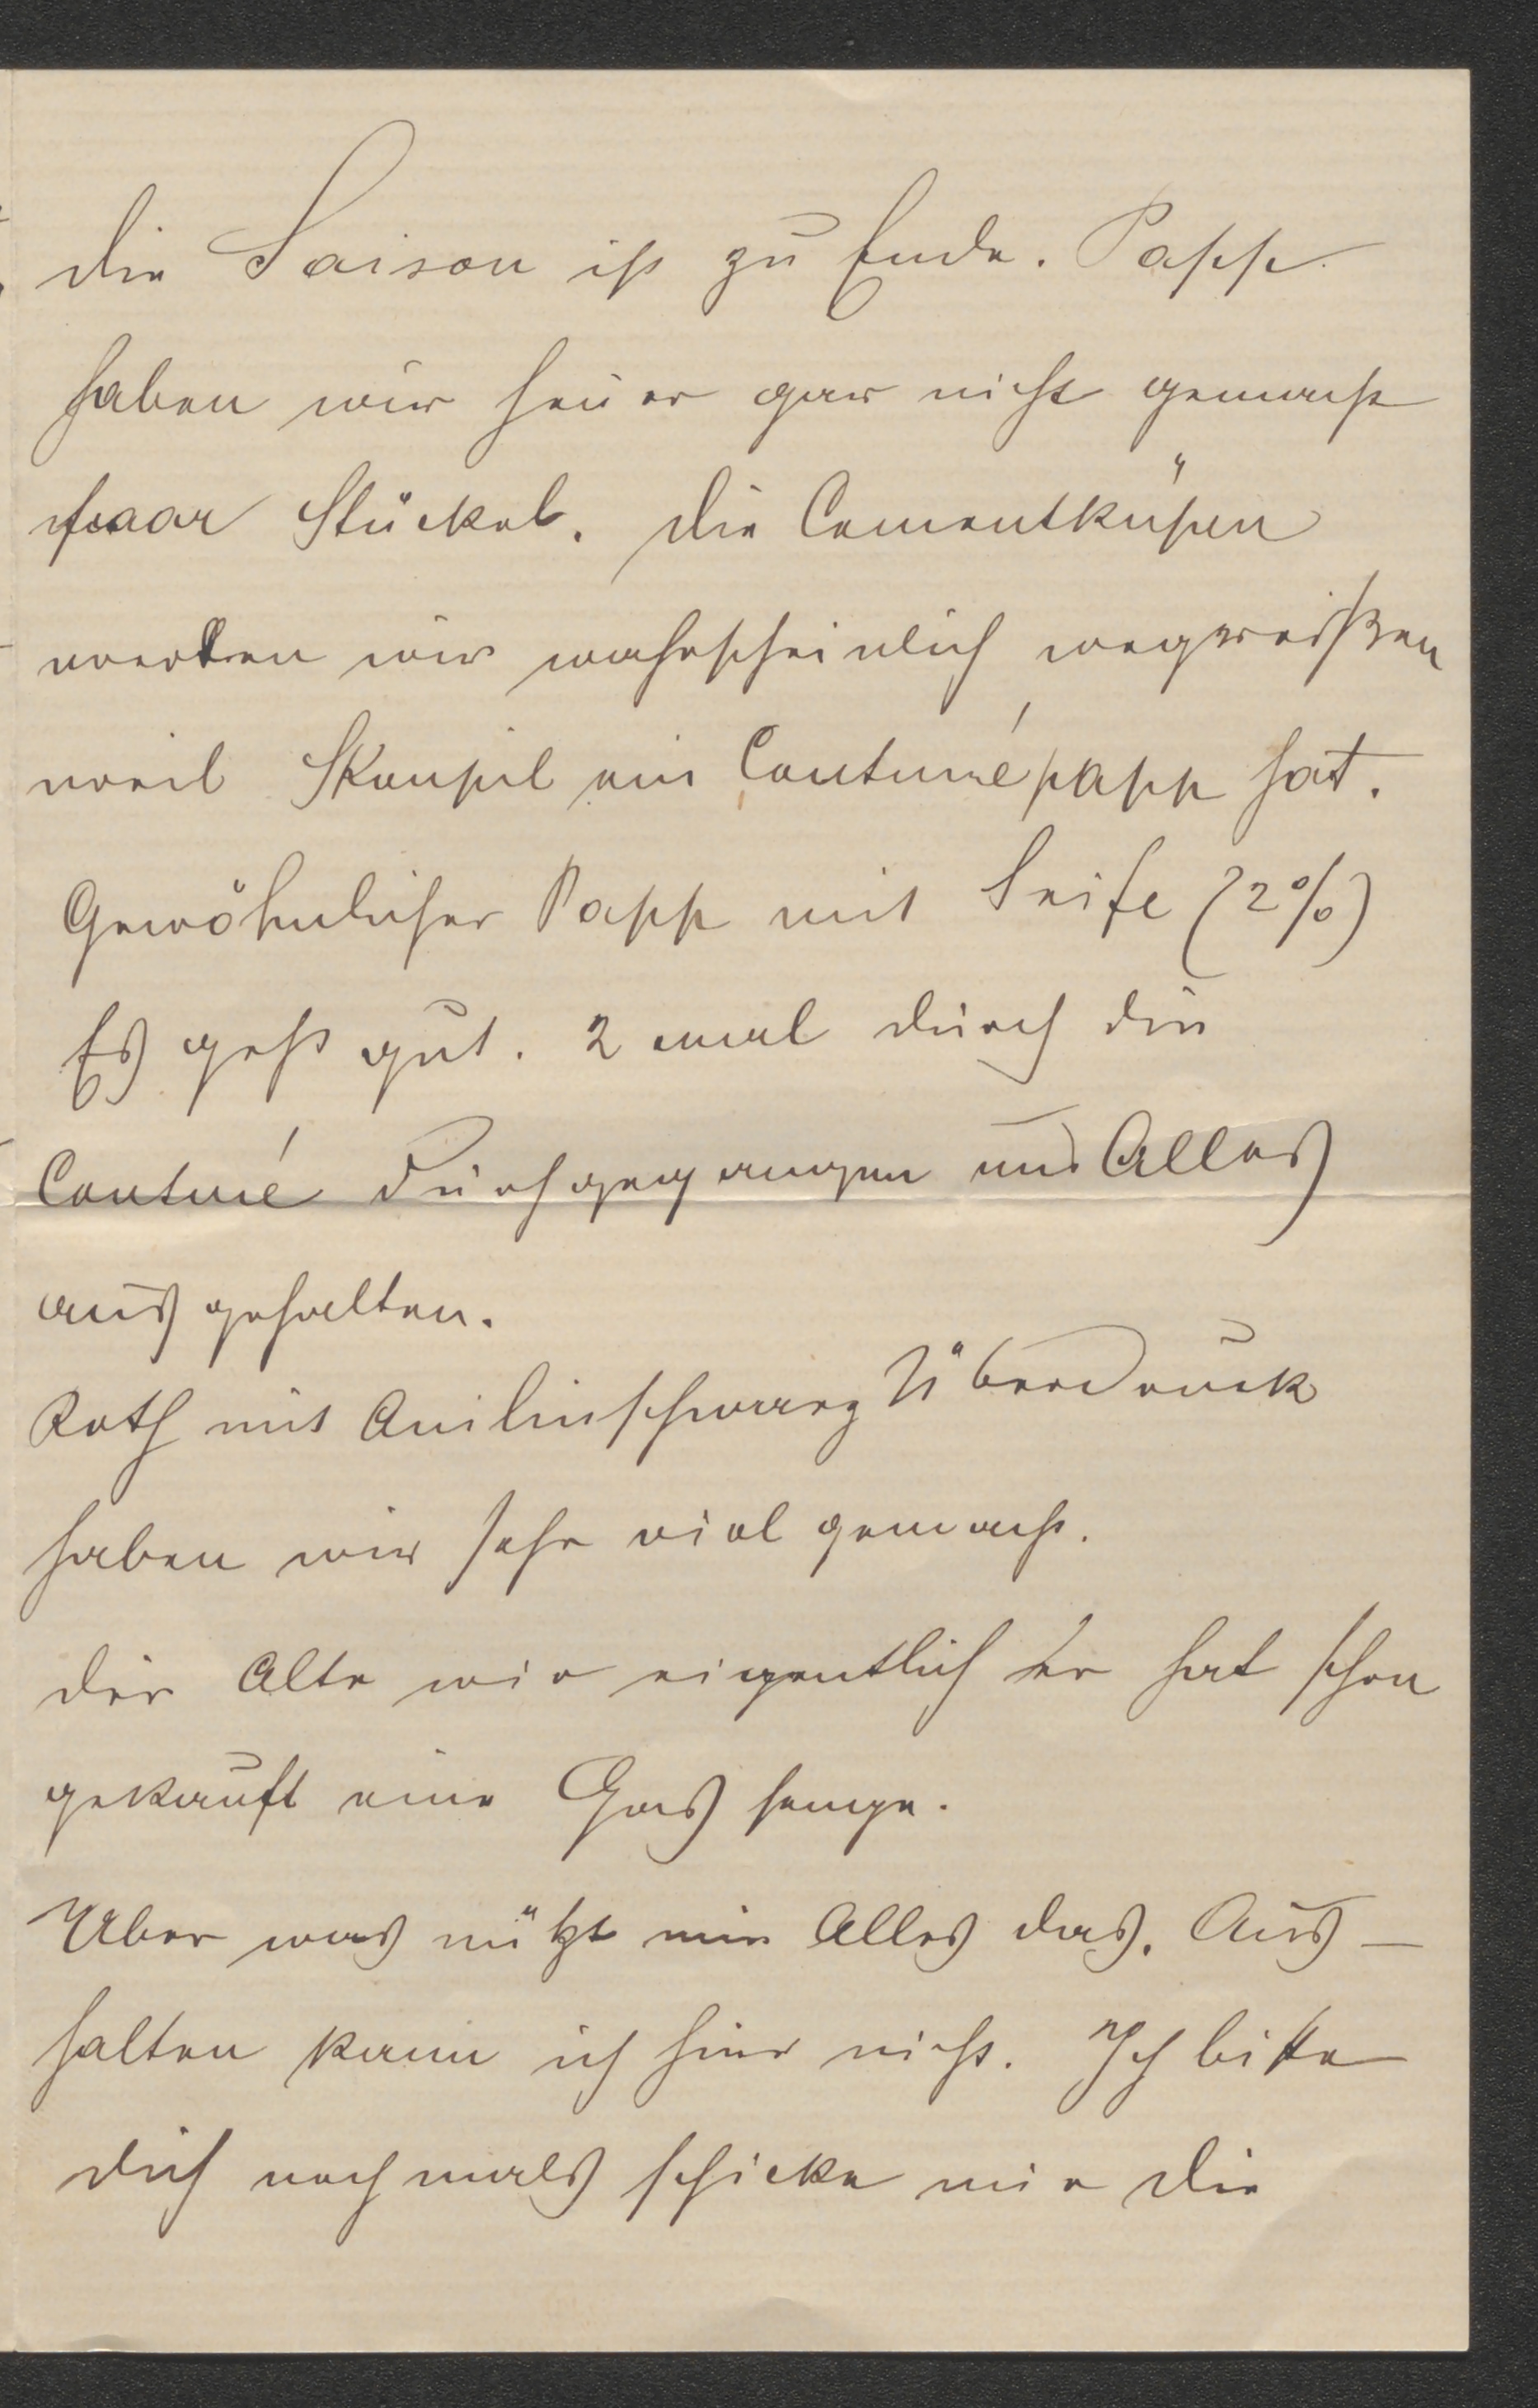 die Saison ist zu Ende. Papp
haben wir heuer gar nicht gemacht
paar Stückel. Die Cementküpen
werden wir wahrscheinlich wegreißen
weil Skoupil ein Continuépapp hat.
Gewöhnlicher Papp mit Seife (2%)
Es geht gut. 2 mal durch die
Continué durchgegangen und Alles
ausgehalten.
Roth mit Anilinschwarz Überdruck
haben wir sehr viel gemacht.
Der Alte wir eigentlich er hat schon
gekauft eine Gas senge.
Aber was nützt mir Alles das. Aus-
halten kann ich hier nicht. Ich bitte
Dich nochmals schicke mir die